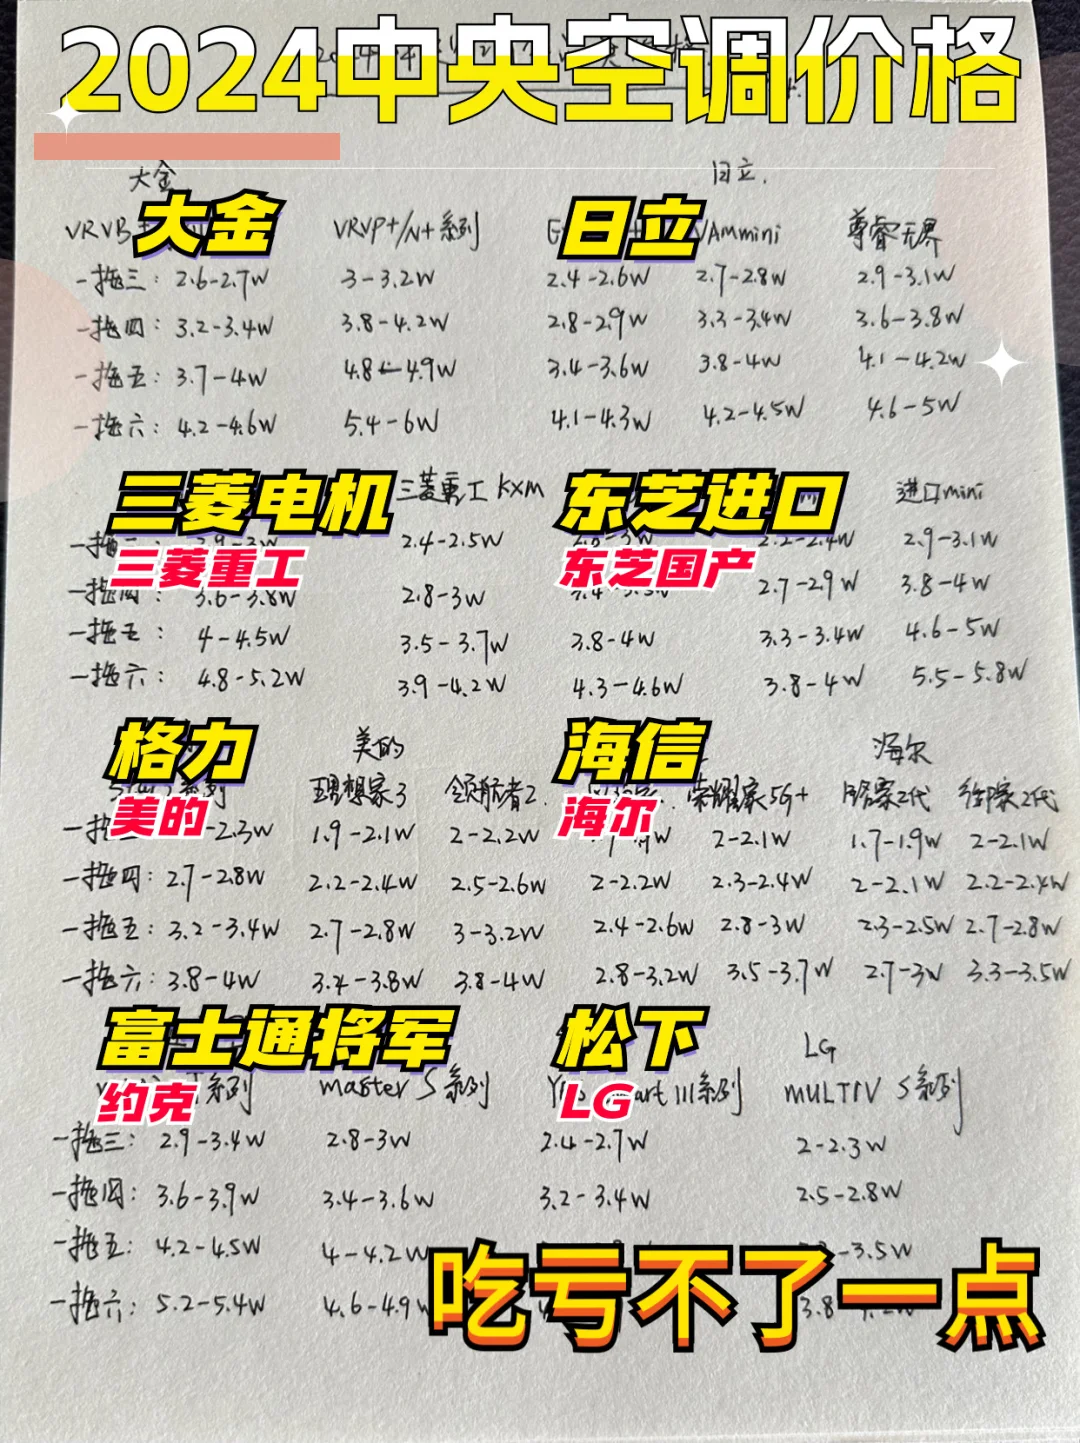 2024中央空调价格
大金 日立.
大金 日立
VRVB VRVP+/N+系列 Ammini 尊睿无界
一拖三: 2.6-2.7W 3-3.2W 2.4-2.6W 2.7-2.8W 2.9-3.1W
一拖四: 3.2-3.4W 3.8-4.2W 2.8-2.9W 3.3-3.4W 3.6-3.8W
一拖五: 3.7-4W 4.8-4.9W 3.4-3.6W 3.8-4W 4.1-4.2W
一拖六: 4.2-4.6W 5.4-6W 4.1-4.3W 4.2-4.5W 4.6-5W
三菱电机 三菱重工 KXM 东芝进口 进口mini
一拖三: 2.4-2.5W 2.2-2.4W 2.9-3.1W
三菱重工 东芝国产
一拖四: 3.6-3.8W 2.8-3W 2.7-2.9W 3.8-4W
一拖五: 4-4.5W 3.5-3.7W 3.8-4W 3.3-3.4W 4.6-5W
一拖六: 4.8-5.2W 3.9-4.2W 4.3-4.6W 3.8-4W 5.5-5.8W
格力 美的 海信 海尔
系列 理想家3 领航者2. 荣耀家5G+ 2代 2代
美的 海尔
一拖三: -2.3W 1.9-2.1W 2-2.2W 2-2.1W 1.7-1.9W 2-2.1W
一拖四: 2.7-2.8W 2.2-2.4W 2.5-2.6W 2-2.2W 2.3-2.4W 2-2.1W 2.2-2.4W
一拖五: 3.2-3.4W 2.7-2.8W 3-3.2W 2.4-2.6W 2.8-3W 2.3-2.5W 2.7-2.8W
一拖六: 3.8-4W 3.4-3.8W 3.8-4W 2.8-3.2W 3.5-3.7W 2.7-3W 3.3-3.5W
富士通将军 松下 LG
系列 master S系列 art III系列 MULTIV S系列
约克 LG
一拖三: 2.9-3.4W 2.8-3W 2.4-2.7W 2-2.3W
一拖四: 3.6-3.9W 3.4-3.6W 3.2-3.4W 2.5-2.8W
一拖五: 4.2-4.5W 4-4.2W -3.5W
一拖六: 5.2-5.4W 4.6-4.9W 3.8
吃亏不了一点